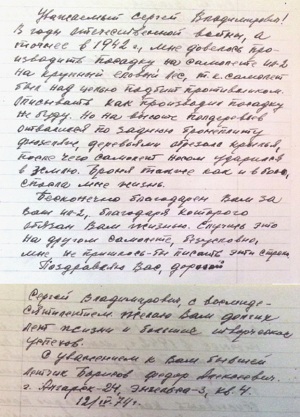 Уважаемый Сергей Владимирович!
В годы отечественной войны, а
точнее в 1942 г, мне довелось про-
изводить посадку на самолете ил-2
на крупный еловый лес, т.к. самолет
был над целью подбит противником.
Описывать как производил посадку
не буду. Но на высоте полдеревьев
отвалился по заднюю бронеплиту
фюзеляж, деревьями обрезало крылья,
после чего самолет носом ударился
в землю. Броня также как и в бою,
спасла мне жизнь.
Бесконечно благодарен Вам за
Ваш ил-2, благодаря которого
обязан Вам жизнью. Случись это
на другом самолете, безусловно,
мне не пришлось бы писать эти строки.
Поздравляю Вас, дорогой
Сергей Владимирович, с восьмиде-
сятилетием. Желаю Вам долгих
лет жизни и больших творческих
успехов.
С уважением к Вам бывший
летчик Федор
г. Ангарск-24, 3, кв. 4.
74 г.